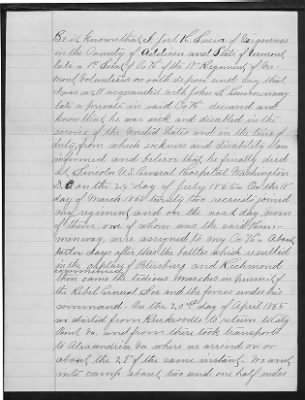 Be it known that I, Joel H. Lucia of Vergennes
in the County of Addison and State of Vermont,
late a 1st Lieut of Co K of the 17th Regiment of Ver-
mont Volunteers on oath depose and say that
I was well acquainted with John S. Hemmenway
late a private in said Co K. deceased and
know that he was sick and disabled in the
service of the United States and in the line of
duty, from which sickness and disability I am
informed and believe that he finally died
at Lincoln U.S. General Hospital Washington
D.C. on the 24 day of July 1865 On the 18
day of March 1865 twenty two recruits joined
my regiment and on the next day seven
of them, one of whom was the said Hem-
menway, were assigned to my Co K. About
days after this the battles which resulted
in the capture of Petersburg and Richmond
commenced
Then came the tedious marches in pursuit of
the Rebel General Lee and the forces under his
command. On the 20th day of April 1865
we started from Burkesville to return to City
Point Va. and from there took transports
to Alexandria Va where we arrived on or
about the 28 of the same instant. We went
into camp about two and one half miles